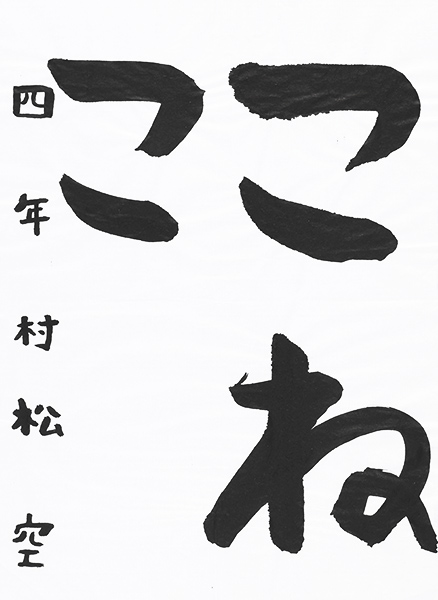 こね
こ
四年 村松 空